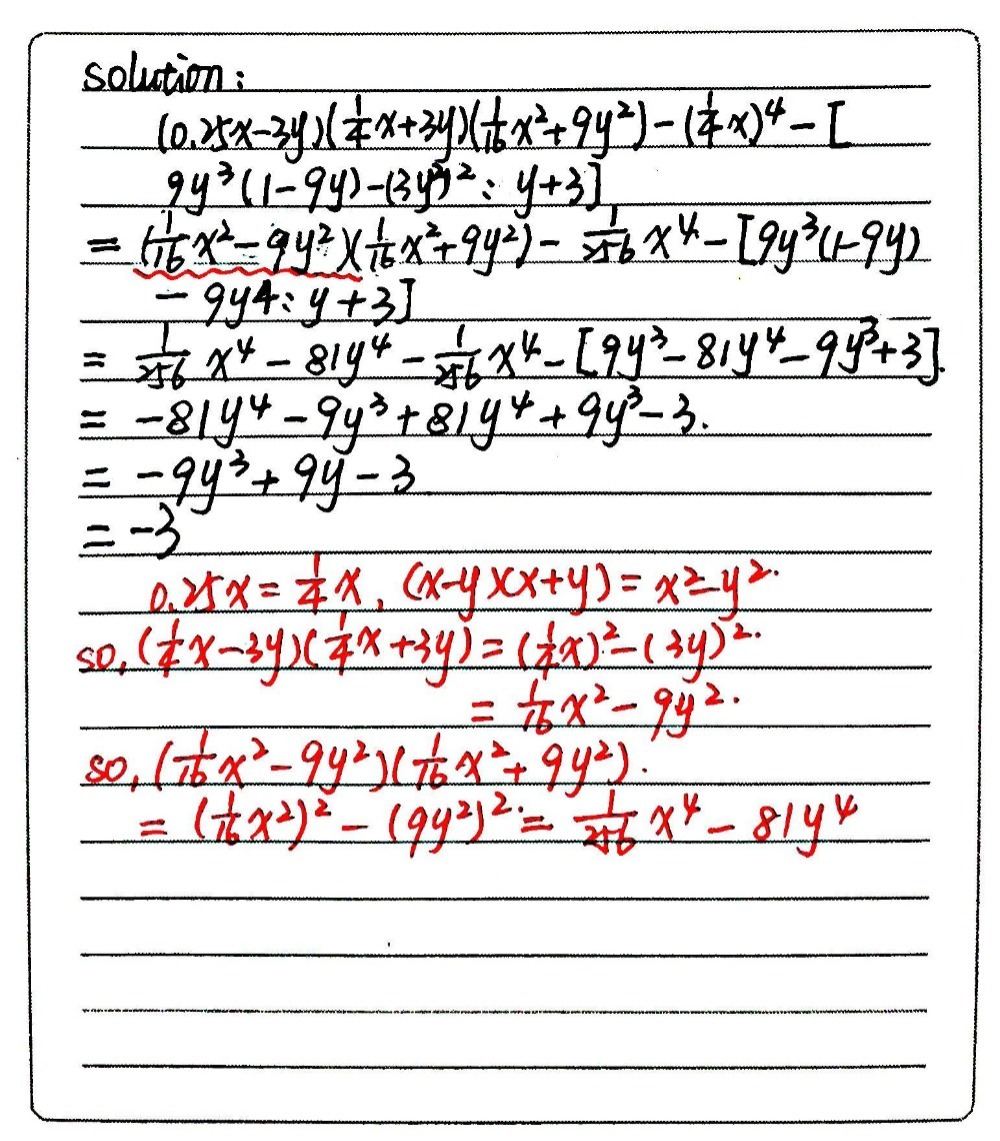 Solution:
(0.25x-3y)(1/4x+3y)(1/16x²+9y²)-(1/4x)⁴-[
9y³(1-9y)-(3y²)²:y+3]
=(1/16x²-9y²)(1/16x²+9y²)-1/256x⁴-[9y³(1-9y)
-9y4:y+3]
=1/256x⁴-81y⁴-1/256x⁴-[9y³-81y⁴-9y³+3].
=-81y⁴-9y³+81y⁴+9y³-3.
=-9y³+9y-3
=-3
0.25x=1/4x, (x-y)(x+y)=x²-y².
so, (1/4x-3y)(1/4x+3y)=(1/4x)²-(3y)².
=1/16x²-9y².
so, (1/16x²-9y²)(1/16x²+9y²).
=(1/16x²)²-(9y²)²=1/256x⁴-81y⁴